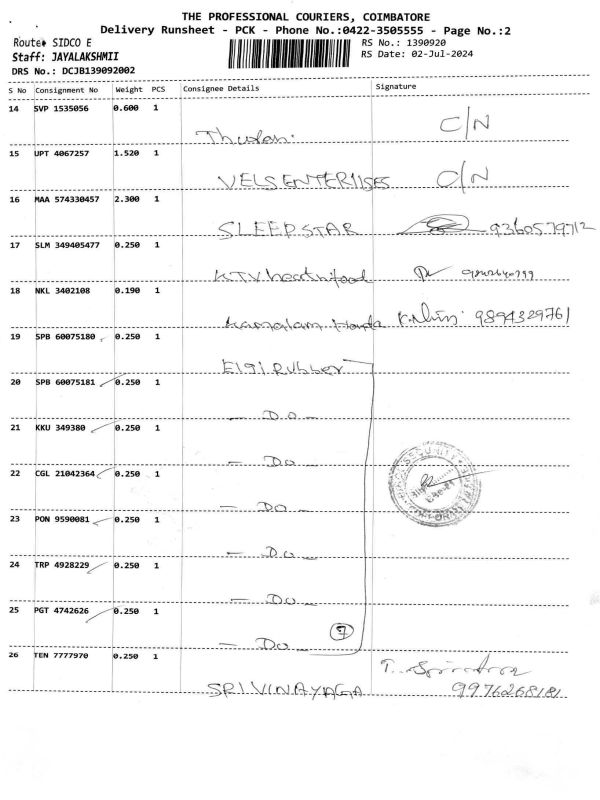 THE PROFESSIONAL COURIERS, COIMBATORE
Delivery Runsheet - PCK - Phone No.:0422-3505555 - Page No.:2
Route: SIDCO E
RS No.: 1390920
Staff: JAYALAKSHMII
RS Date: 02-Jul-2024
DRS No.: DCJB139092002
S No Consignment No Weight PCS Consignee Details Signature
14 SVP 1535056 0.600 1
C/N
15 UPT 4067257 1.520 1
VELS ENTERPRISES C/N
16 MAA 574330457 2.300 1
SLEEP STAR 9360579712
17 SLM 349405477 0.250 1
KTV health food
18 NKL 3402108 0.190 1
Kamalam Honda 9894329761
19 SPB 60075180 0.250 1
Elgi Rubber
20 SPB 60075181 0.250 1
- Do -
21 KKU 349380 0.250 1
- Do -
22 CGL 21042364 0.250 1
- Do -
23 PON 9590081 0.250 1
- Do -
24 TRP 4928229 0.250 1
- Do -
25 PGT 4742626 0.250 1
- Do - 7
26 TEN 7777970 0.250 1
SRI VINAYAGA 9976268181